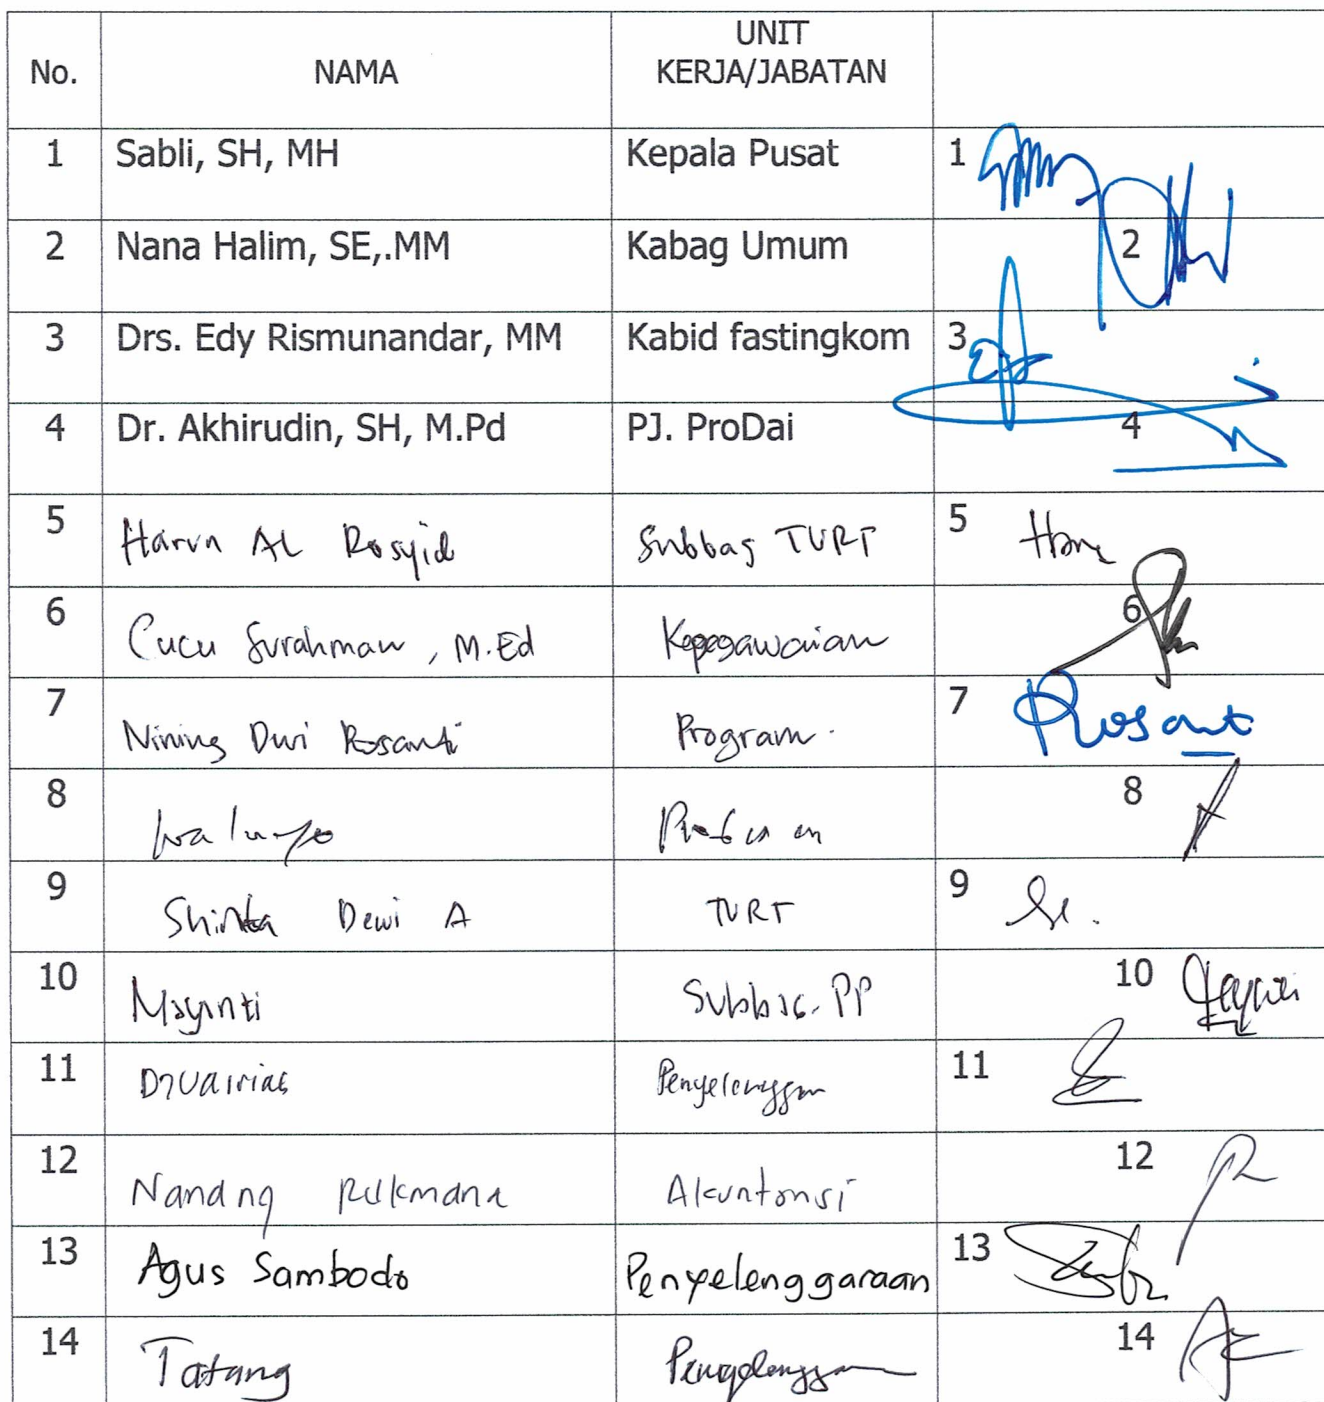 No. NAMA UNIT KERJA/JABATAN
1 Sabli, SH, MH Kepala Pusat 1
2 Nana Halim, SE,.MM Kabag Umum 2
3 Drs. Edy Rismunandar, MM Kabid fastingkom 3
4 Dr. Akhirudin, SH, M.Pd PJ. ProDai 4
5 Harun Al Rosyid Subbag TURT 5
6 Cucu Surahman, M.Ed Kepegawaian 6
7 Nining Dwi Rosanti Program. 7 Rosant
8 Waluyo 8
9 Shinta Dewi A TURT 9
10 Mayanti Subbag. PP 10
11 11
12 Nanang Rukmana Akuntansi 12
13 Agus Sambodo Penyelenggaraan 13
14 Tatang 14